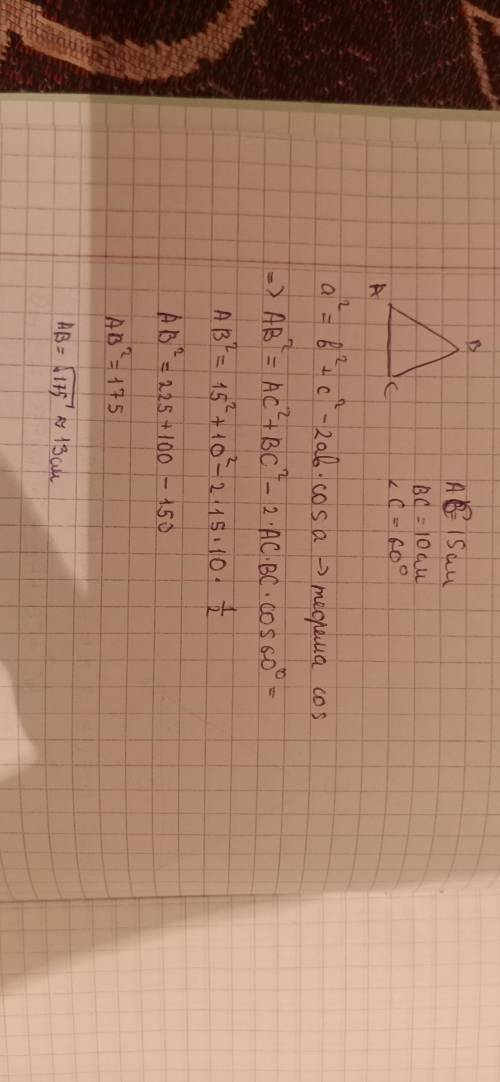 B
A
C
AC = 15 см
BC = 10 см
∠C = 60°
a² = b² + c² - 2ab · cos a → теорема cos
=> AB² = AC² + BC² - 2 · AC · BC · cos 60° =
AB² = 15² + 10² - 2 · 15 · 10 · 1/2
AB² = 225 + 100 - 150
AB² = 175
AB = √175 ≈ 13 см